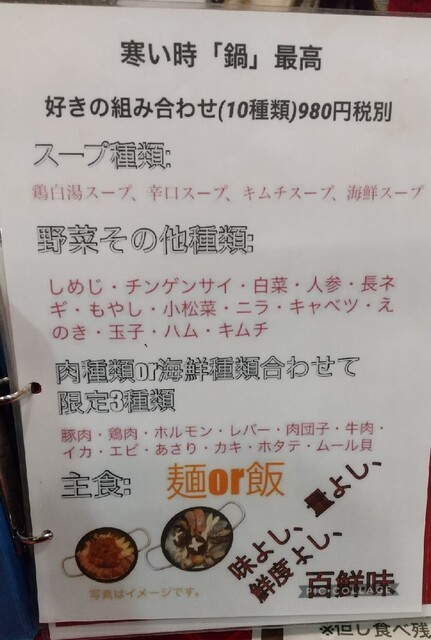 寒い時「鍋」最高
好きの組み合わせ(10種類)980円税別
スープ種類:
鶏白湯スープ、辛口スープ、キムチスープ、海鮮スープ
野菜その他種類:
しめじ・チンゲンサイ・白菜・人参・長ネ
ギ・もやし・小松菜・ニラ・キャベツ・え
のき・玉子・ハム・キムチ
肉種類or海鮮種類合わせて
限定3種類
豚肉・鶏肉・ホルモン・レバー・肉団子・牛肉・
イカ・エビ・あさり・カキ・ホタテ・ムール貝
主食: 麺or飯
味よし、量よし、
鮮度よし、
百鮮味
PIC•COLLAGE
写真はイメージです。
※但し食べ残